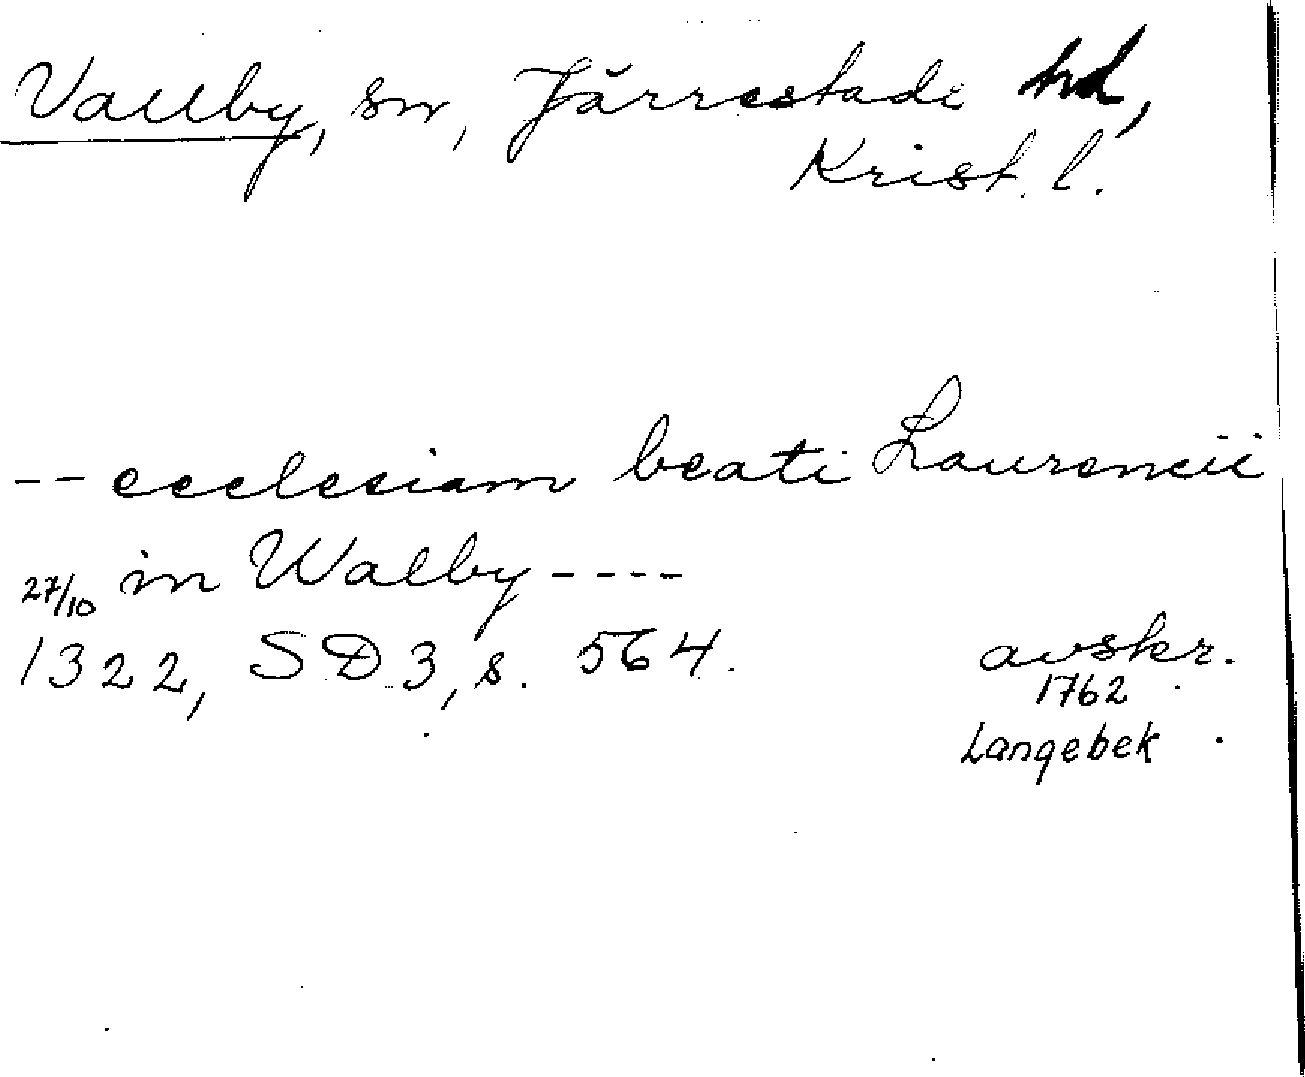 Vallby, sn, Järrestads hd,
Krist. l.
-- ecclesiam beati Laurencii
27/10 in Walby ----
1322, SD 3, s. 564.
avskr.
1762
Langebek